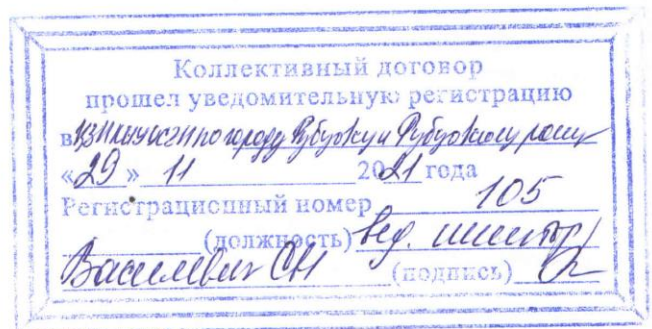 Коллективный договор
прошел уведомительную регистрацию
в по городу Рубцовску и Рубцовскому району
«29» 11 2021 года
Регистрационный номер 105
(должность) вед. инспектор
Василевич СН (подпись)